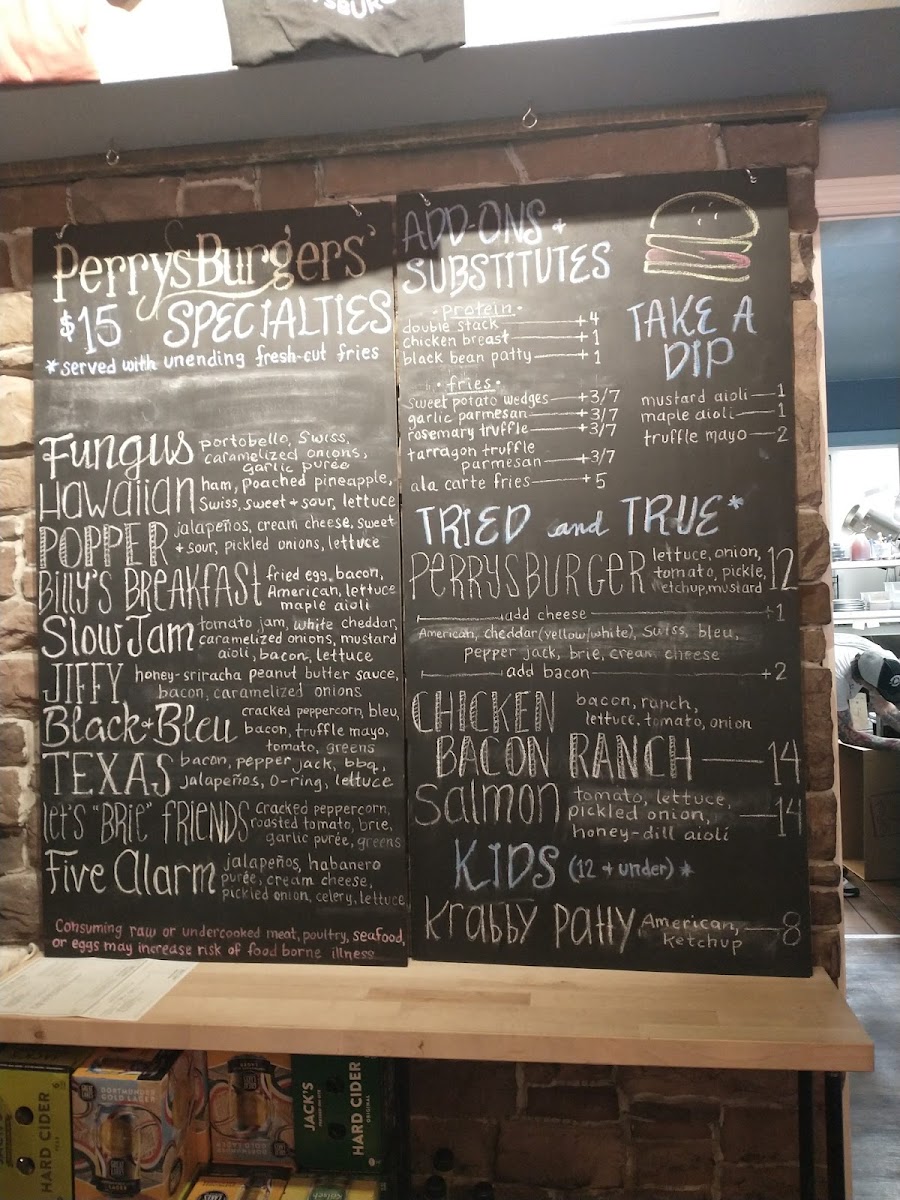 PerrysBurgers'
$15 SPECIALTIES
*served with unending fresh-cut fries
Fungus portobello, Swiss,
caramelized onions,
garlic purée
Hawaiian ham, poached pineapple,
Swiss, sweet + sour, lettuce
POPPER jalapeños, cream cheese, sweet
+ sour, pickled onions, lettuce
BILLY'S BREAKFAST fried egg, bacon,
American, lettuce
maple aioli
Slow Jam tomato jam, white cheddar,
caramelized onions, mustard
aioli, bacon, lettuce
JIFFY honey-sriracha peanut butter sauce,
bacon, caramelized onions
Black+Bleu cracked peppercorn, bleu,
bacon, truffle mayo,
tomato, greens
TEXAS bacon, pepper jack, bbq,
jalapeños, O-ring, lettuce
let's "BRIE" FRIENDS cracked peppercorn,
roasted tomato, brie,
garlic purée, greens
Five Alarm jalapeños, habanero
purée, cream cheese,
pickled onion, celery, lettuce
Consuming raw or undercooked meat, poultry, seafood,
or eggs may increase risk of food borne illness
ADD-ONS +
SUBSTITUTES
-Protein-
double stack +4
chicken breast +1
black bean patty +1
• fries •
sweet potato wedges +3/7
garlic parmesan +3/7
rosemary truffle +3/7
tarragon truffle
parmesan +3/7
ala carte fries +5
TAKE A
DIP
mustard aioli 1
maple aioli 1
truffle mayo 2
TRIED and TRUE*
PERRYSBURGER lettuce, onion,
tomato, pickle, 12
ketchup, mustard
add cheese +1
American, cheddar (yellow/white), Swiss, bleu,
pepper jack, brie, cream cheese
add bacon +2
CHICKEN bacon, ranch,
lettuce, tomato, onion
BACON RANCH 14
Salmon tomato, lettuce,
pickled onion, 14
honey-dill aioli
KIDS (12 + under) *
Krabby Patty American, 8
Ketchup
HARD CIDER
DORTMUNDER
GOLD LAGER
JACK'S
HARD CIDER
ORIGINAL